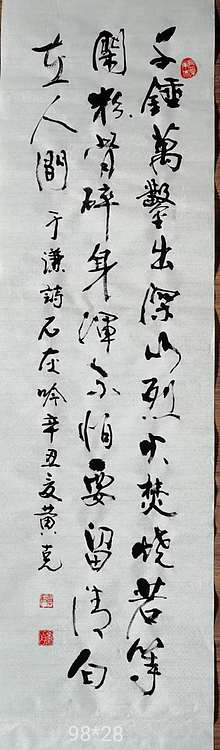 千錘萬鑿出深山烈火焚燒若等
閑粉骨碎身渾不怕要留清白
在人間 于謙詩石灰吟辛丑夏黃克
98*28